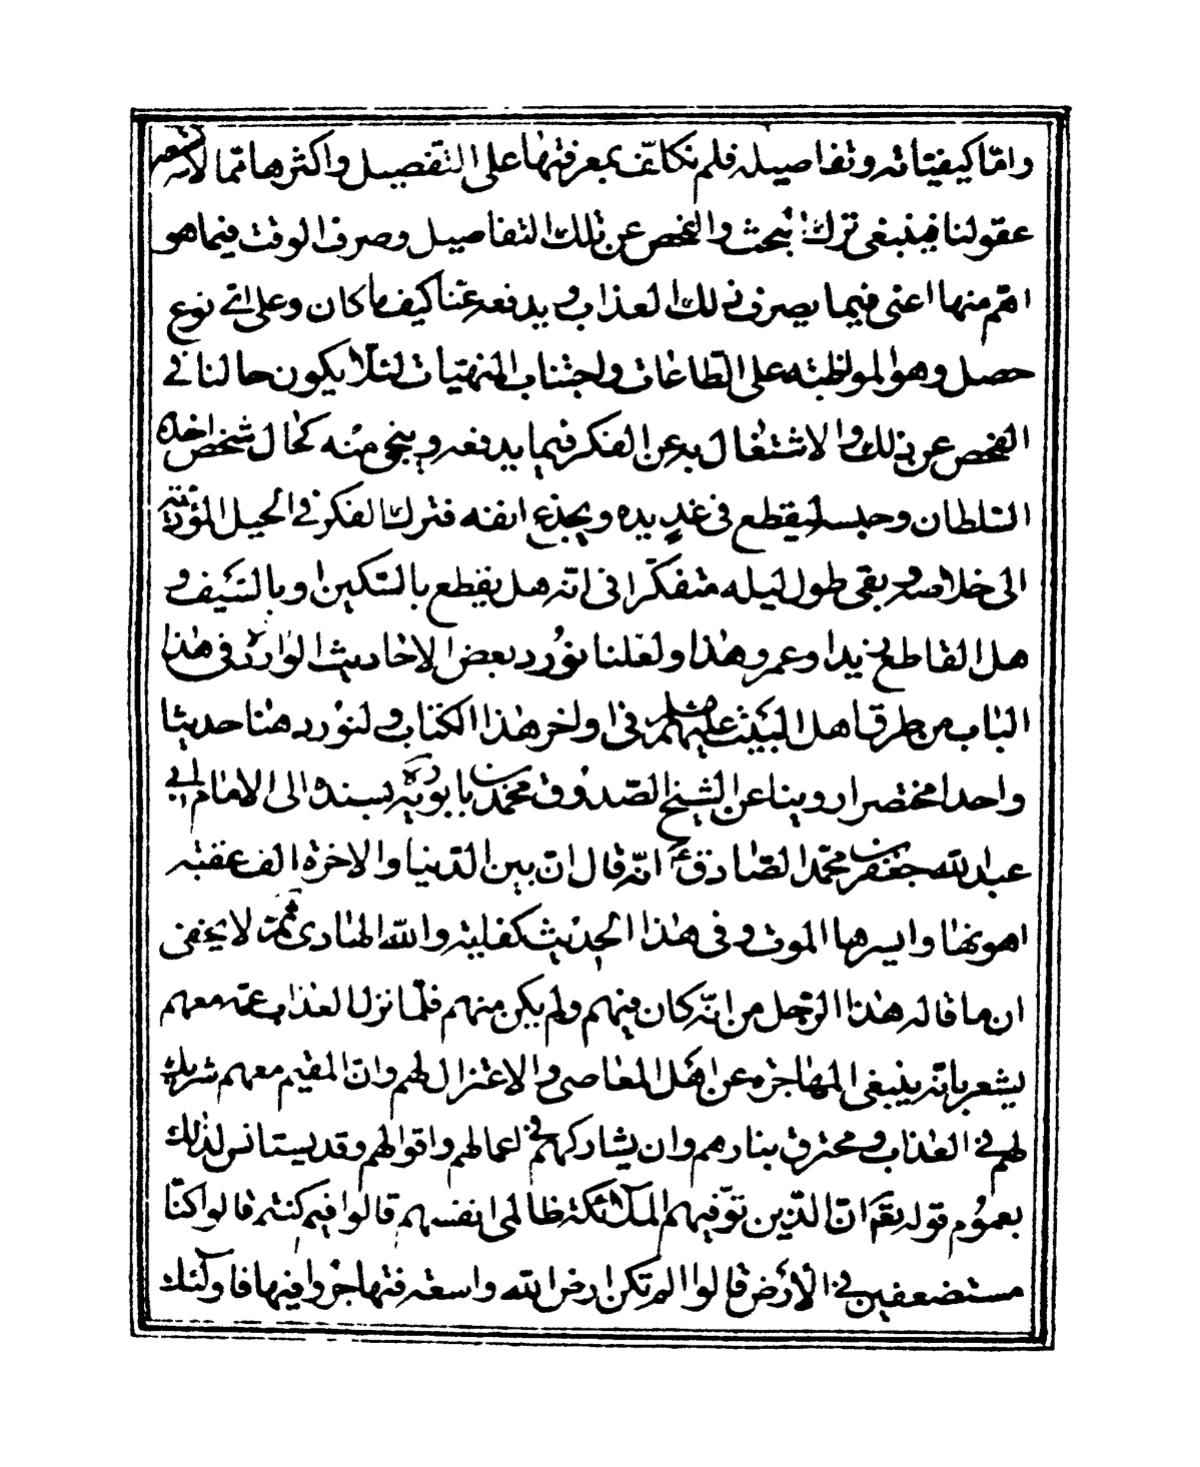 وامّا كيفيّاته وتفاصيله فلم نكلّف بمعرفتها على التفصيل واكثرها ممّا لا تسعه
عقولنا فينبغى ترك البحث والفحص عن تلك التفاصيل وصرف الوقت فيما هو
اهمّ منها اعنى فيما يصرف ذلك العذاب ويدفعه عنّا كيف ما كان وعلى اىّ نوع
حصل وهو المواظبته على الطّاعات واجتناب المنهيّات لئلّا يكون حالنا فى
الفحص عن ذلك والاشتغال به عن الفكر فيما يدفعه وينجى منه كحال شخص اخذه
السّلطان وحبسه ليقطع فى غدٍ يده ويجذع انفه فترك الفكر فى الحيل المؤدّيته
الى خلاصه وبقى طول ليله متفكّرا فى انّه هل يقطع بالسّكين او بالسّيف و
هل القاطع زيد او عمرو هذا ولعلنا نورد بعض الاحاديث الواردة فى هذا
الباب من طرق اهل البيت عليهم السلم فى اواخر هذا الكتاب ولنورد هنا حديثا
واحدا مختصرا روينا عن الشيخ الصّدوق محمّد بن بابويه ره بسنده الى الامام ابى
عبدالله جعفر بن محمّد الصّادق ع انّه قال انّ بين الدّنيا والاخرة الف عقبته
اهونها وايسرها الموت وفى هذا الحديث كفايته والله الهادى ثمّ لا يخفى
ان ما قاله هذا الرّجل من انّه كان فيهم ولم يكن منهم فلمّا نزل العذاب عمّه معهم
يشعر بانّه ينبغى المهاجرة عن اهل المعاصى والاعتزال لهم وانّ المقيم معهم شريك
لهم فى العذاب ومحترق بنارهم وان لم يشاركهم فى اعمالهم واقوالهم وقد يستانس لذلك
بعموم قوله تعم انّ الّذين توفّيهم الملائكة ظالمى انفسهم قالوا فيم كنتم قالوا كنّا
مستضعفين فى الارض قالوا الم تكن ارض الله واسعته فتهاجروا فيها فاولئك